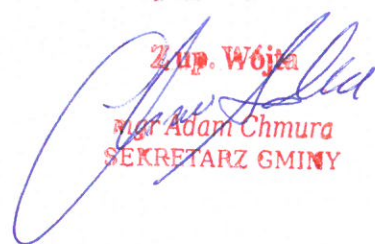 Z up. Wójta
mgr Adam Chmura
SEKRETARZ GMINY